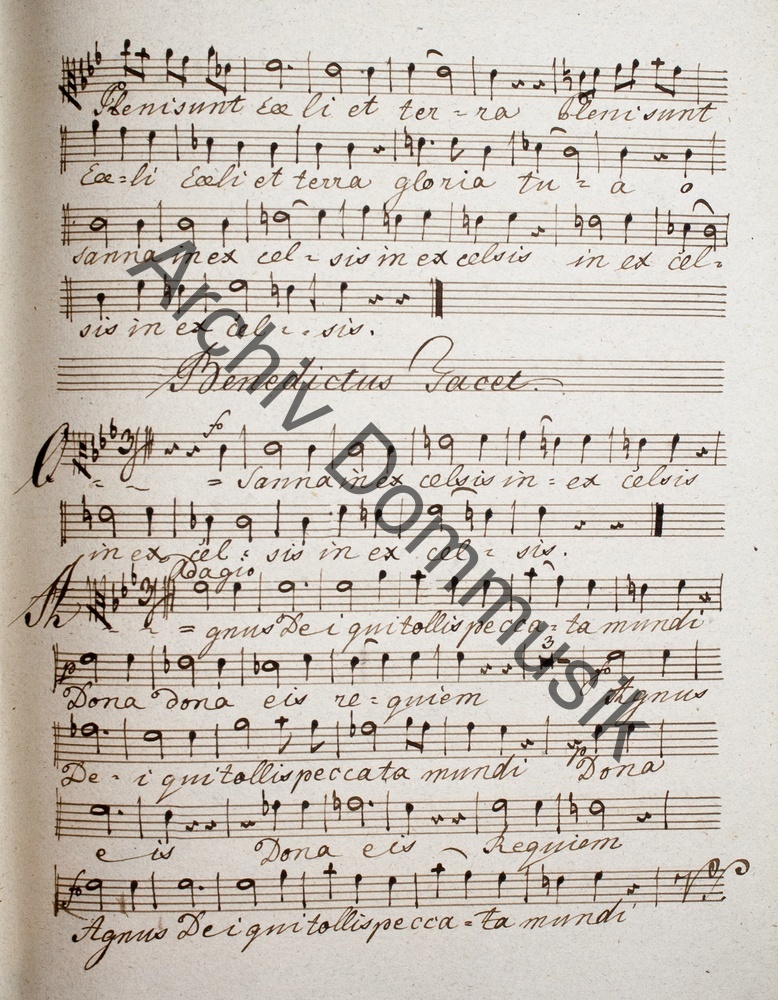 Plenisunt Cœ li et ter = ra Plenisunt
Cœ = li Cœli et terra gloria tu = a o
sanna in ex cel = sis in ex celsis in ex cel =
sis in ex cel = = sis.
Benedictus Tacet.
fo
O - - = Sanna in ex celsis in = ex celsis
in ex cel = sis in ex cel = sis.
Adagio
A - - = gnus De i qui tollis pecca = ta mundi
p 3 fo
Dona dona eis re = quiem Agnus
po
De - i qui tollis peccata mundi Dona
e is Dona e is Requiem
fo
Agnus De i qui tollis pecca = ta mundi
Archiv Dommusik